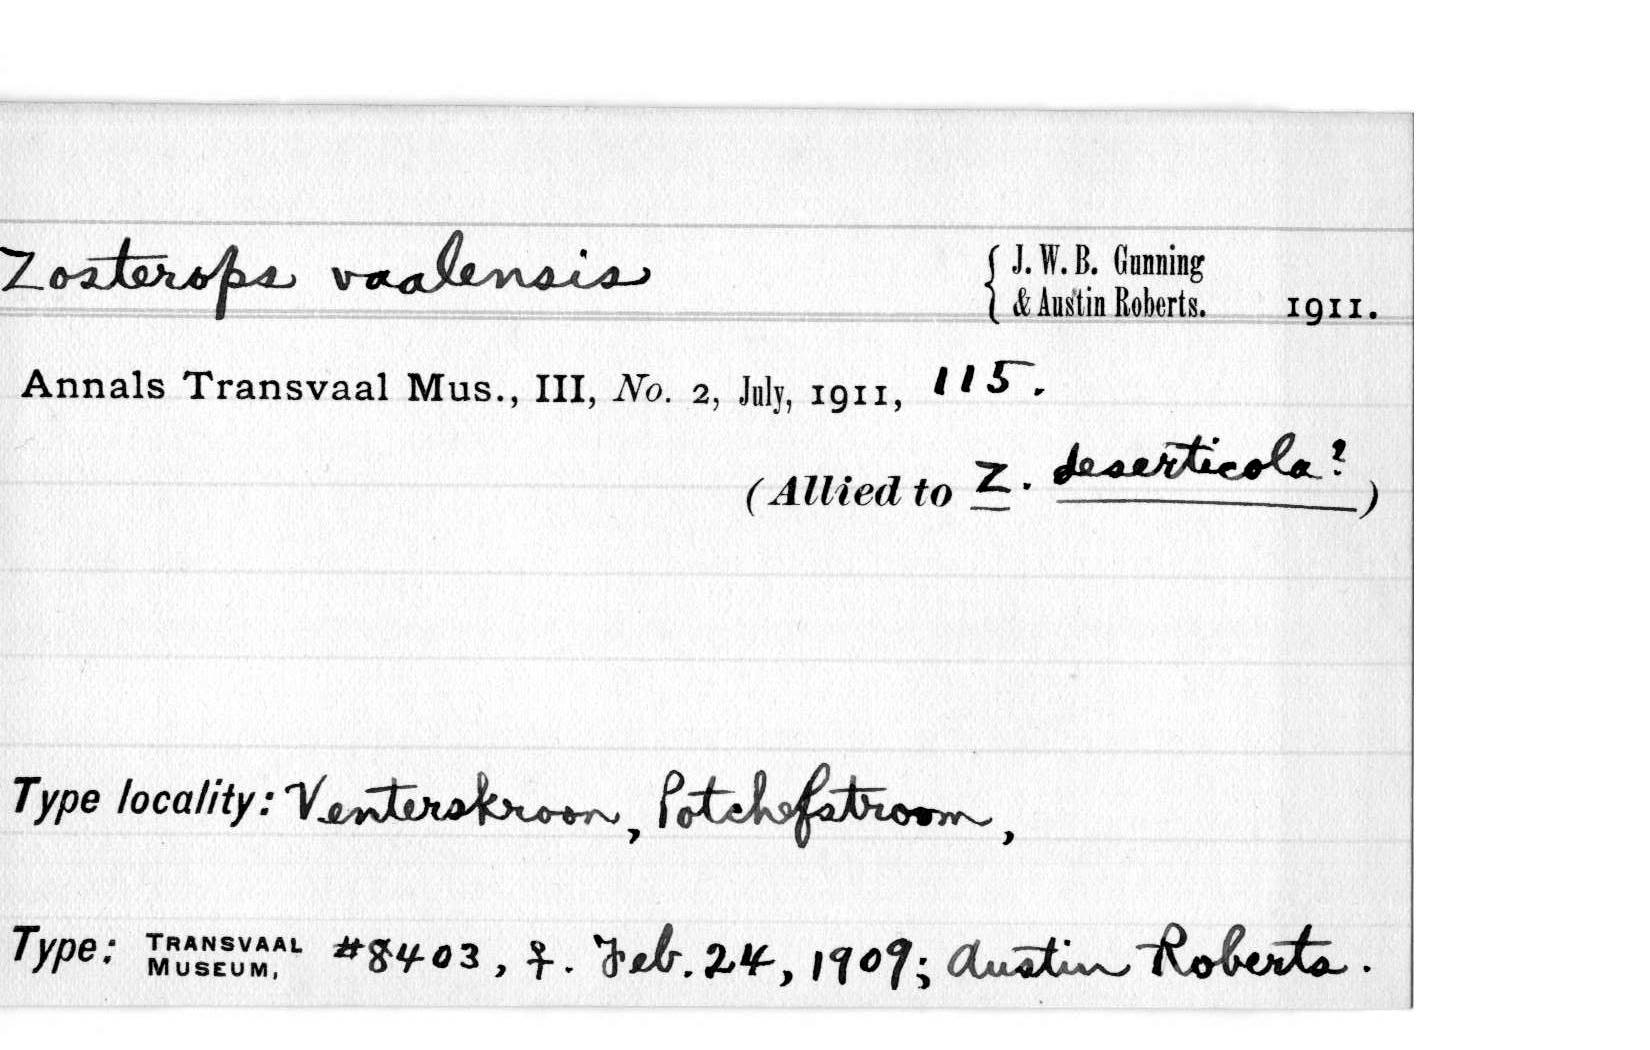 Zosterops vaalensis { J. W. B. Gunning & Austin Roberts. 1911.
Annals Transvaal Mus., III, No. 2, July, 1911, 115.
(Allied to Z. deserticola?)
Type locality: Venterskroon, Potchefstroom,
Type: TRANSVAAL MUSEUM, #8403, ♀. Feb. 24, 1909; Austin Roberts.